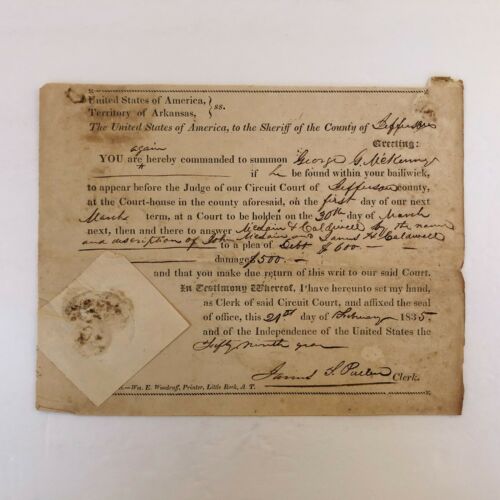 United States of America, } ss.
Territory of Arkansas,
The United States of America, to the Sheriff of the County of Jefferson
Greeting:
again
YOU are hereby commanded to summon George G. McKenny
if he be found within your bailiwick,
to appear before the Judge of our Circuit Court of Jefferson county,
at the Court-house in the county aforesaid, on the first day of our next
March term, at a Court to be holden on the 30th day of March
next, then and there to answer McLain & Caldwell by the name
and description of John McLain and James H. Caldwell
to a plea of Debt $600 -
damage $500. -
and that you make due return of this writ to our said Court.
In Testimony Whereof, I have hereunto set my hand,
as Clerk of said Circuit Court, and affixed the seal
of office, this 21st day of February 1835
and of the Independence of the United States the
Fifty ninth year
James S. Clerk.
Wm. E. Woodruff, Printer, Little Rock, A. T.